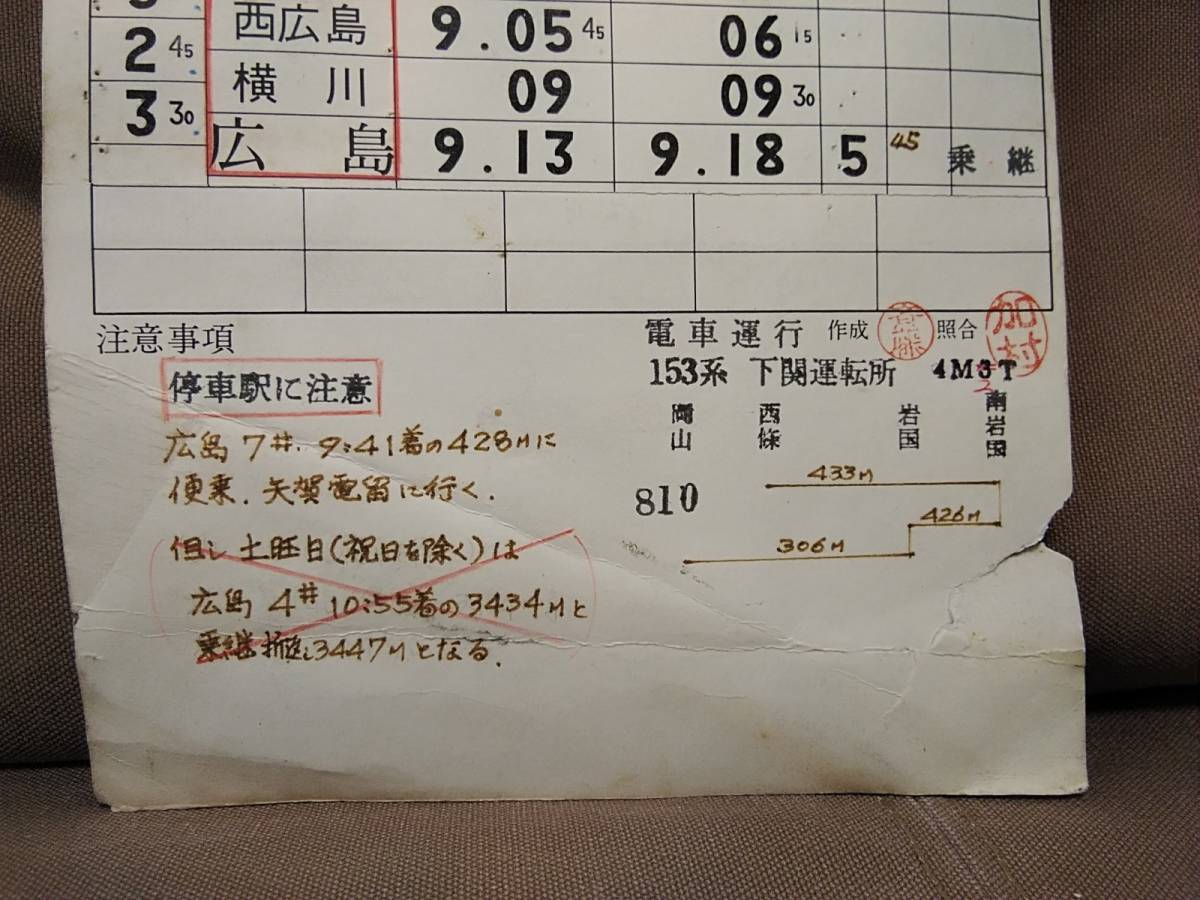 2 45 西広島 9.05 45 06 15
3 30 横川 09 09 30
広島 9.13 9.18 5 45 乗継
注意事項
停車駅に注意
広島 7# 9:41着の428Mに
便乗、矢賀電留に行く.
但し 土旺日(祝日を除く)は
広島 4# 10:55着の3434Mと
乗継 折返し3447Mとなる.
電車運行 作成 照合 加村
153系 下関運転所 4M3T
2
岡山 西條 岩国 南岩国
433M
810
426M
306M